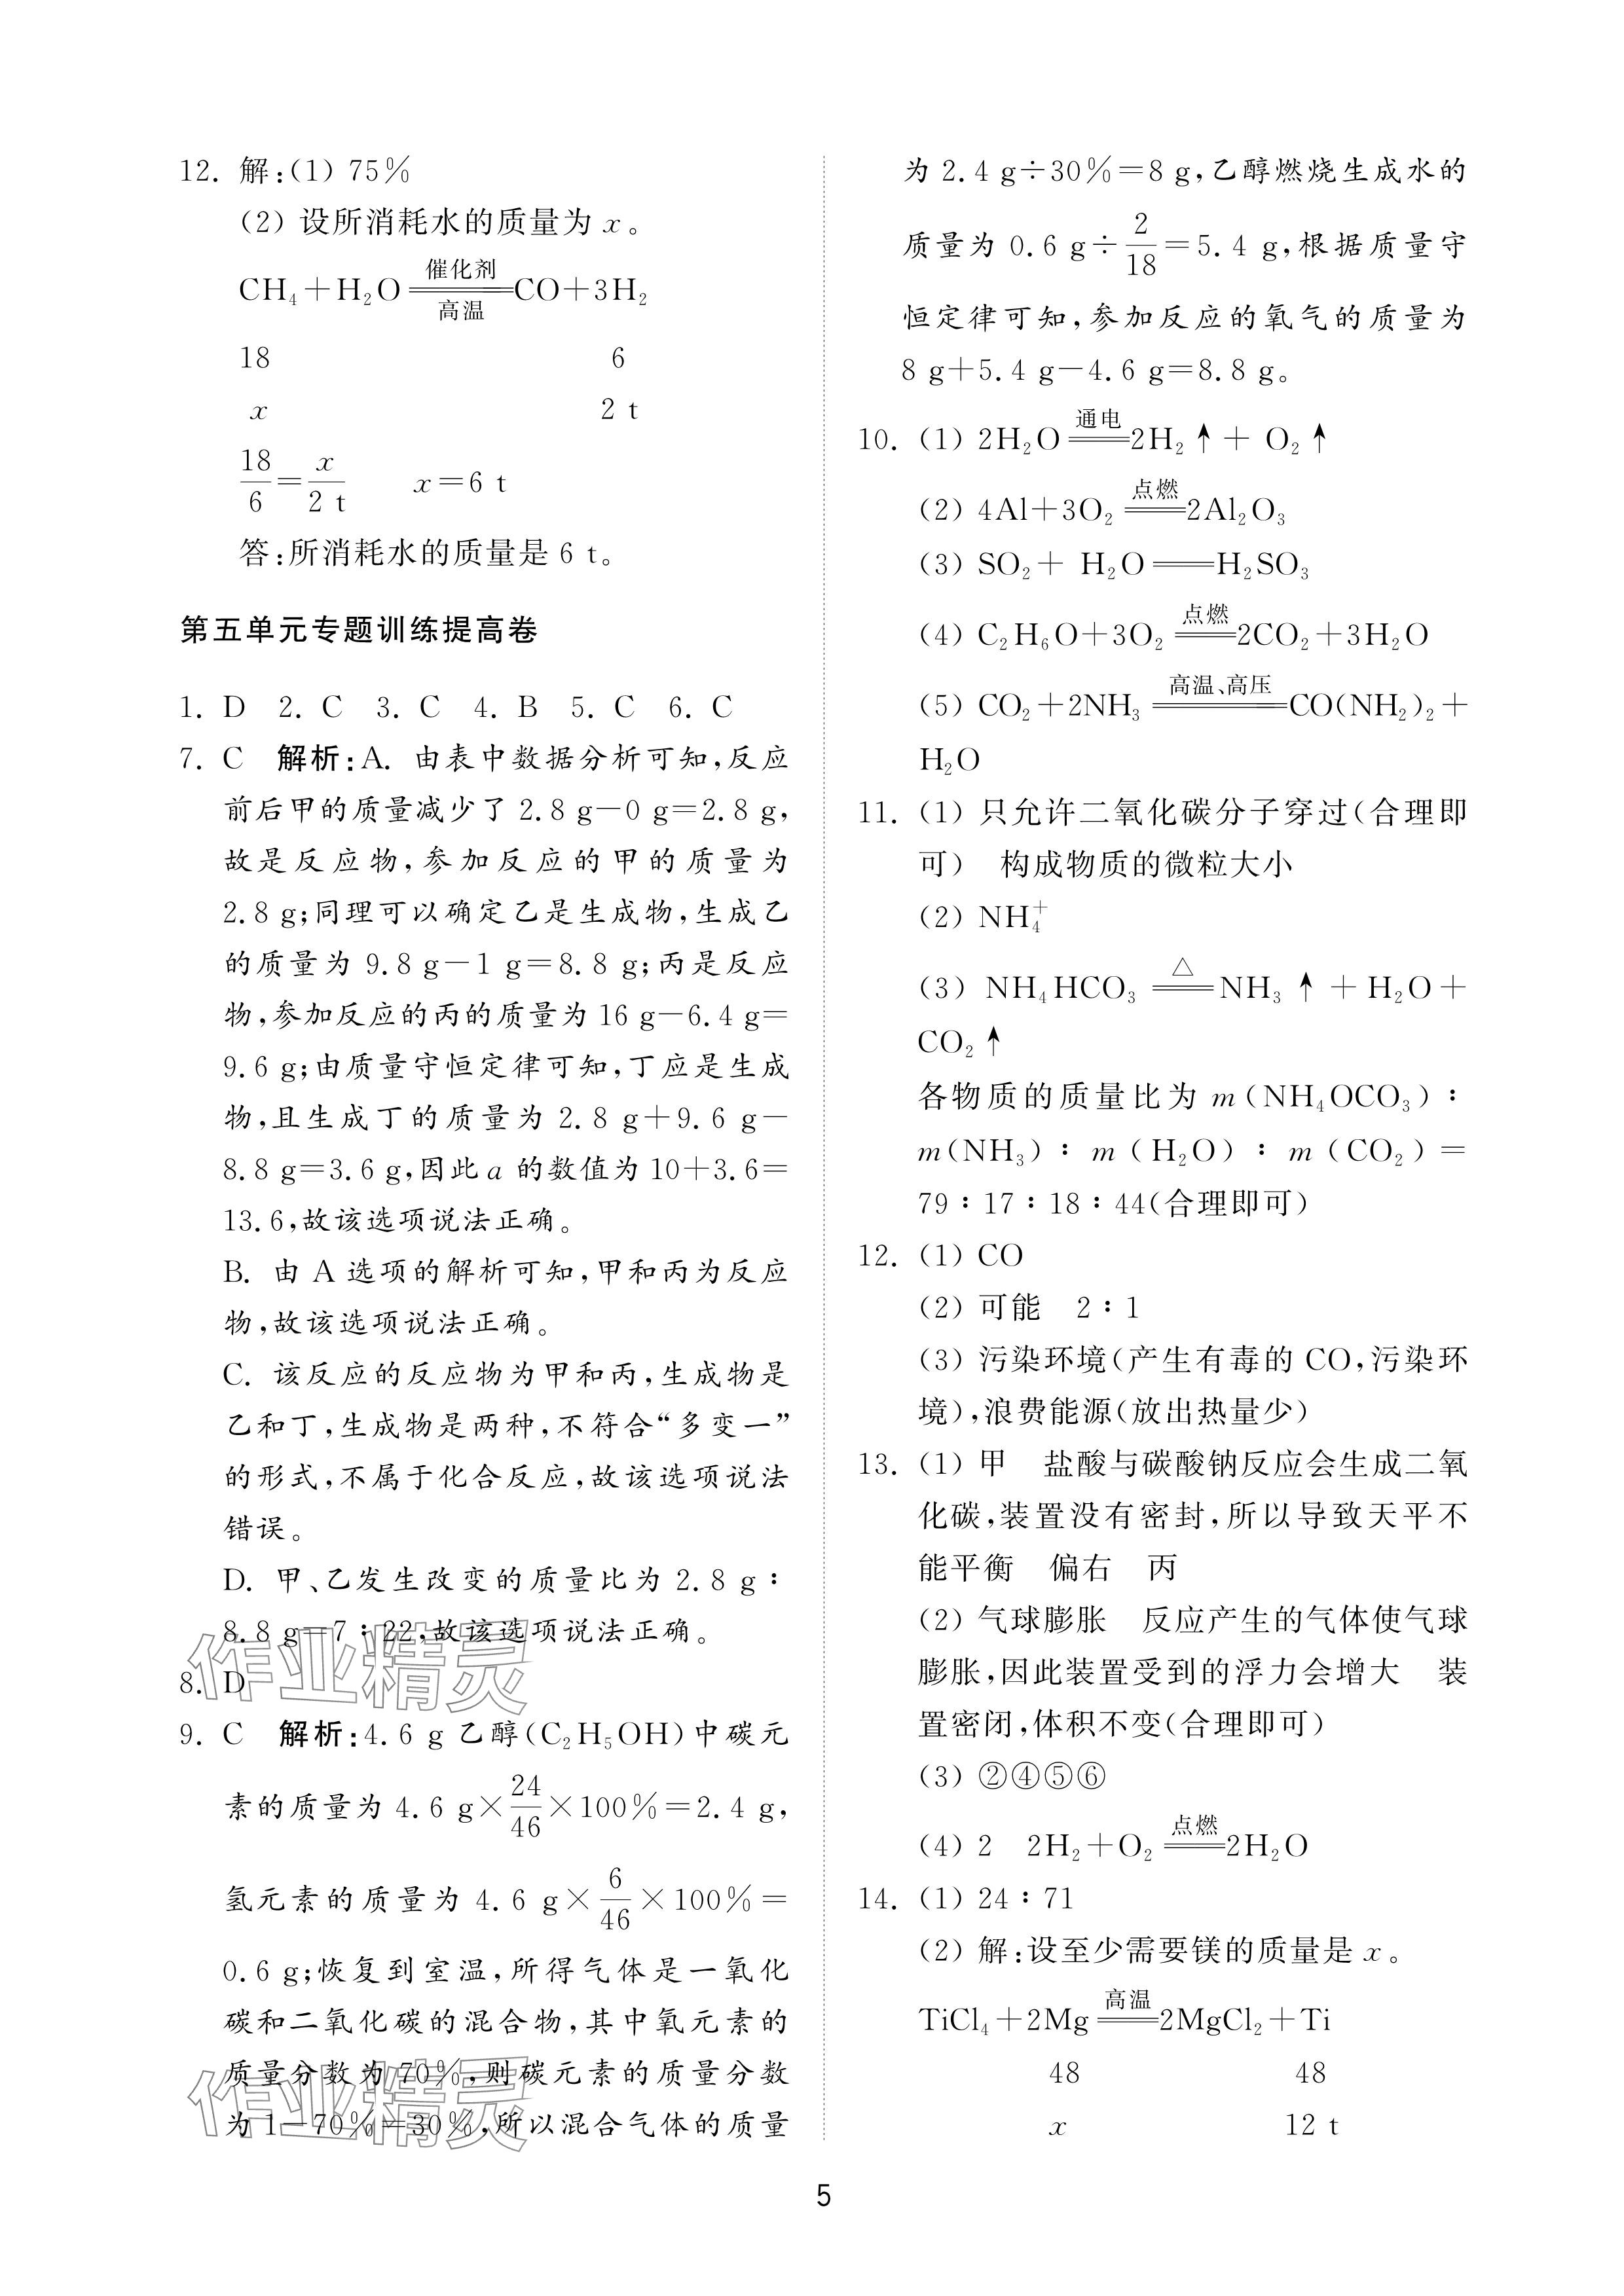 12. 解:(1) 75%
(2) 设所消耗水的质量为 x。
CH₄+H₂O 催化剂 ═══ 高温 CO+3H₂
18 6
x 2 t
18/6=x/2 t x=6 t
答:所消耗水的质量是 6 t。
第五单元专题训练提高卷
1. D 2. C 3. C 4. B 5. C 6. C
7. C 解析:A. 由表中数据分析可知,反应
前后甲的质量减少了 2.8 g－0 g=2.8 g,
故是反应物,参加反应的甲的质量为
2.8 g;同理可以确定乙是生成物,生成乙
的质量为 9.8 g－1 g=8.8 g;丙是反应
物,参加反应的丙的质量为 16 g－6.4 g=
9.6 g;由质量守恒定律可知,丁应是生成
物,且生成丁的质量为 2.8 g+9.6 g－
8.8 g=3.6 g,因此 a 的数值为 10+3.6=
13.6,故该选项说法正确。
B. 由 A 选项的解析可知,甲和丙为反应
物,故该选项说法正确。
C. 该反应的反应物为甲和丙,生成物是
乙和丁,生成物是两种,不符合“多变一”
的形式,不属于化合反应,故该选项说法
错误。
D. 甲、乙发生改变的质量比为 2.8 g∶
8.8 g=7∶22,故该选项说法正确。
作业精灵
8. D
9. C 解析:4.6 g 乙醇(C₂H₅OH)中碳元
素的质量为 4.6 g×24/46×100%=2.4 g,
氢元素的质量为 4.6 g×6/46×100%=
0.6 g;恢复到室温,所得气体是一氧化
碳和二氧化碳的混合物,其中氧元素的
质量分数为 70%,则碳元素的质量分数
为 1－70%=30%,所以混合气体的质量
作业精灵
为 2.4 g÷30%=8 g,乙醇燃烧生成水的
质量为 0.6 g÷2/18=5.4 g,根据质量守
恒定律可知,参加反应的氧气的质量为
8 g+5.4 g－4.6 g=8.8 g。
10. (1) 2H₂O 通电 ═══ 2H₂↑+ O₂↑
(2) 4Al+3O₂ 点燃 ═══ 2Al₂O₃
(3) SO₂+ H₂O ═══ H₂SO₃
(4) C₂H₆O+3O₂ 点燃 ═══ 2CO₂+3H₂O
(5) CO₂+2NH₃ 高温、高压 ═══ CO(NH₂)₂+
H₂O
11. (1) 只允许二氧化碳分子穿过(合理即
可) 构成物质的微粒大小
(2) NH₄⁺
(3) NH₄HCO₃ △ ═══ NH₃↑+H₂O+
CO₂↑
各物质的质量比为 m(NH₄OCO₃)∶
m(NH₃)∶m(H₂O)∶m(CO₂)=
79∶17∶18∶44(合理即可)
12. (1) CO
(2) 可能 2∶1
(3) 污染环境(产生有毒的 CO,污染环
境),浪费能源(放出热量少)
13. (1) 甲 盐酸与碳酸钠反应会生成二氧
化碳,装置没有密封,所以导致天平不
能平衡 偏右 丙
(2) 气球膨胀 反应产生的气体使气球
膨胀,因此装置受到的浮力会增大 装
置密闭,体积不变(合理即可)
(3) ②④⑤⑥
(4) 2 2H₂+O₂ 点燃 ═══ 2H₂O
14. (1) 24∶71
(2) 解:设至少需要镁的质量是 x。
TiCl₄+2Mg 高温 ═══ 2MgCl₂+Ti
48 48
x 12 t
5